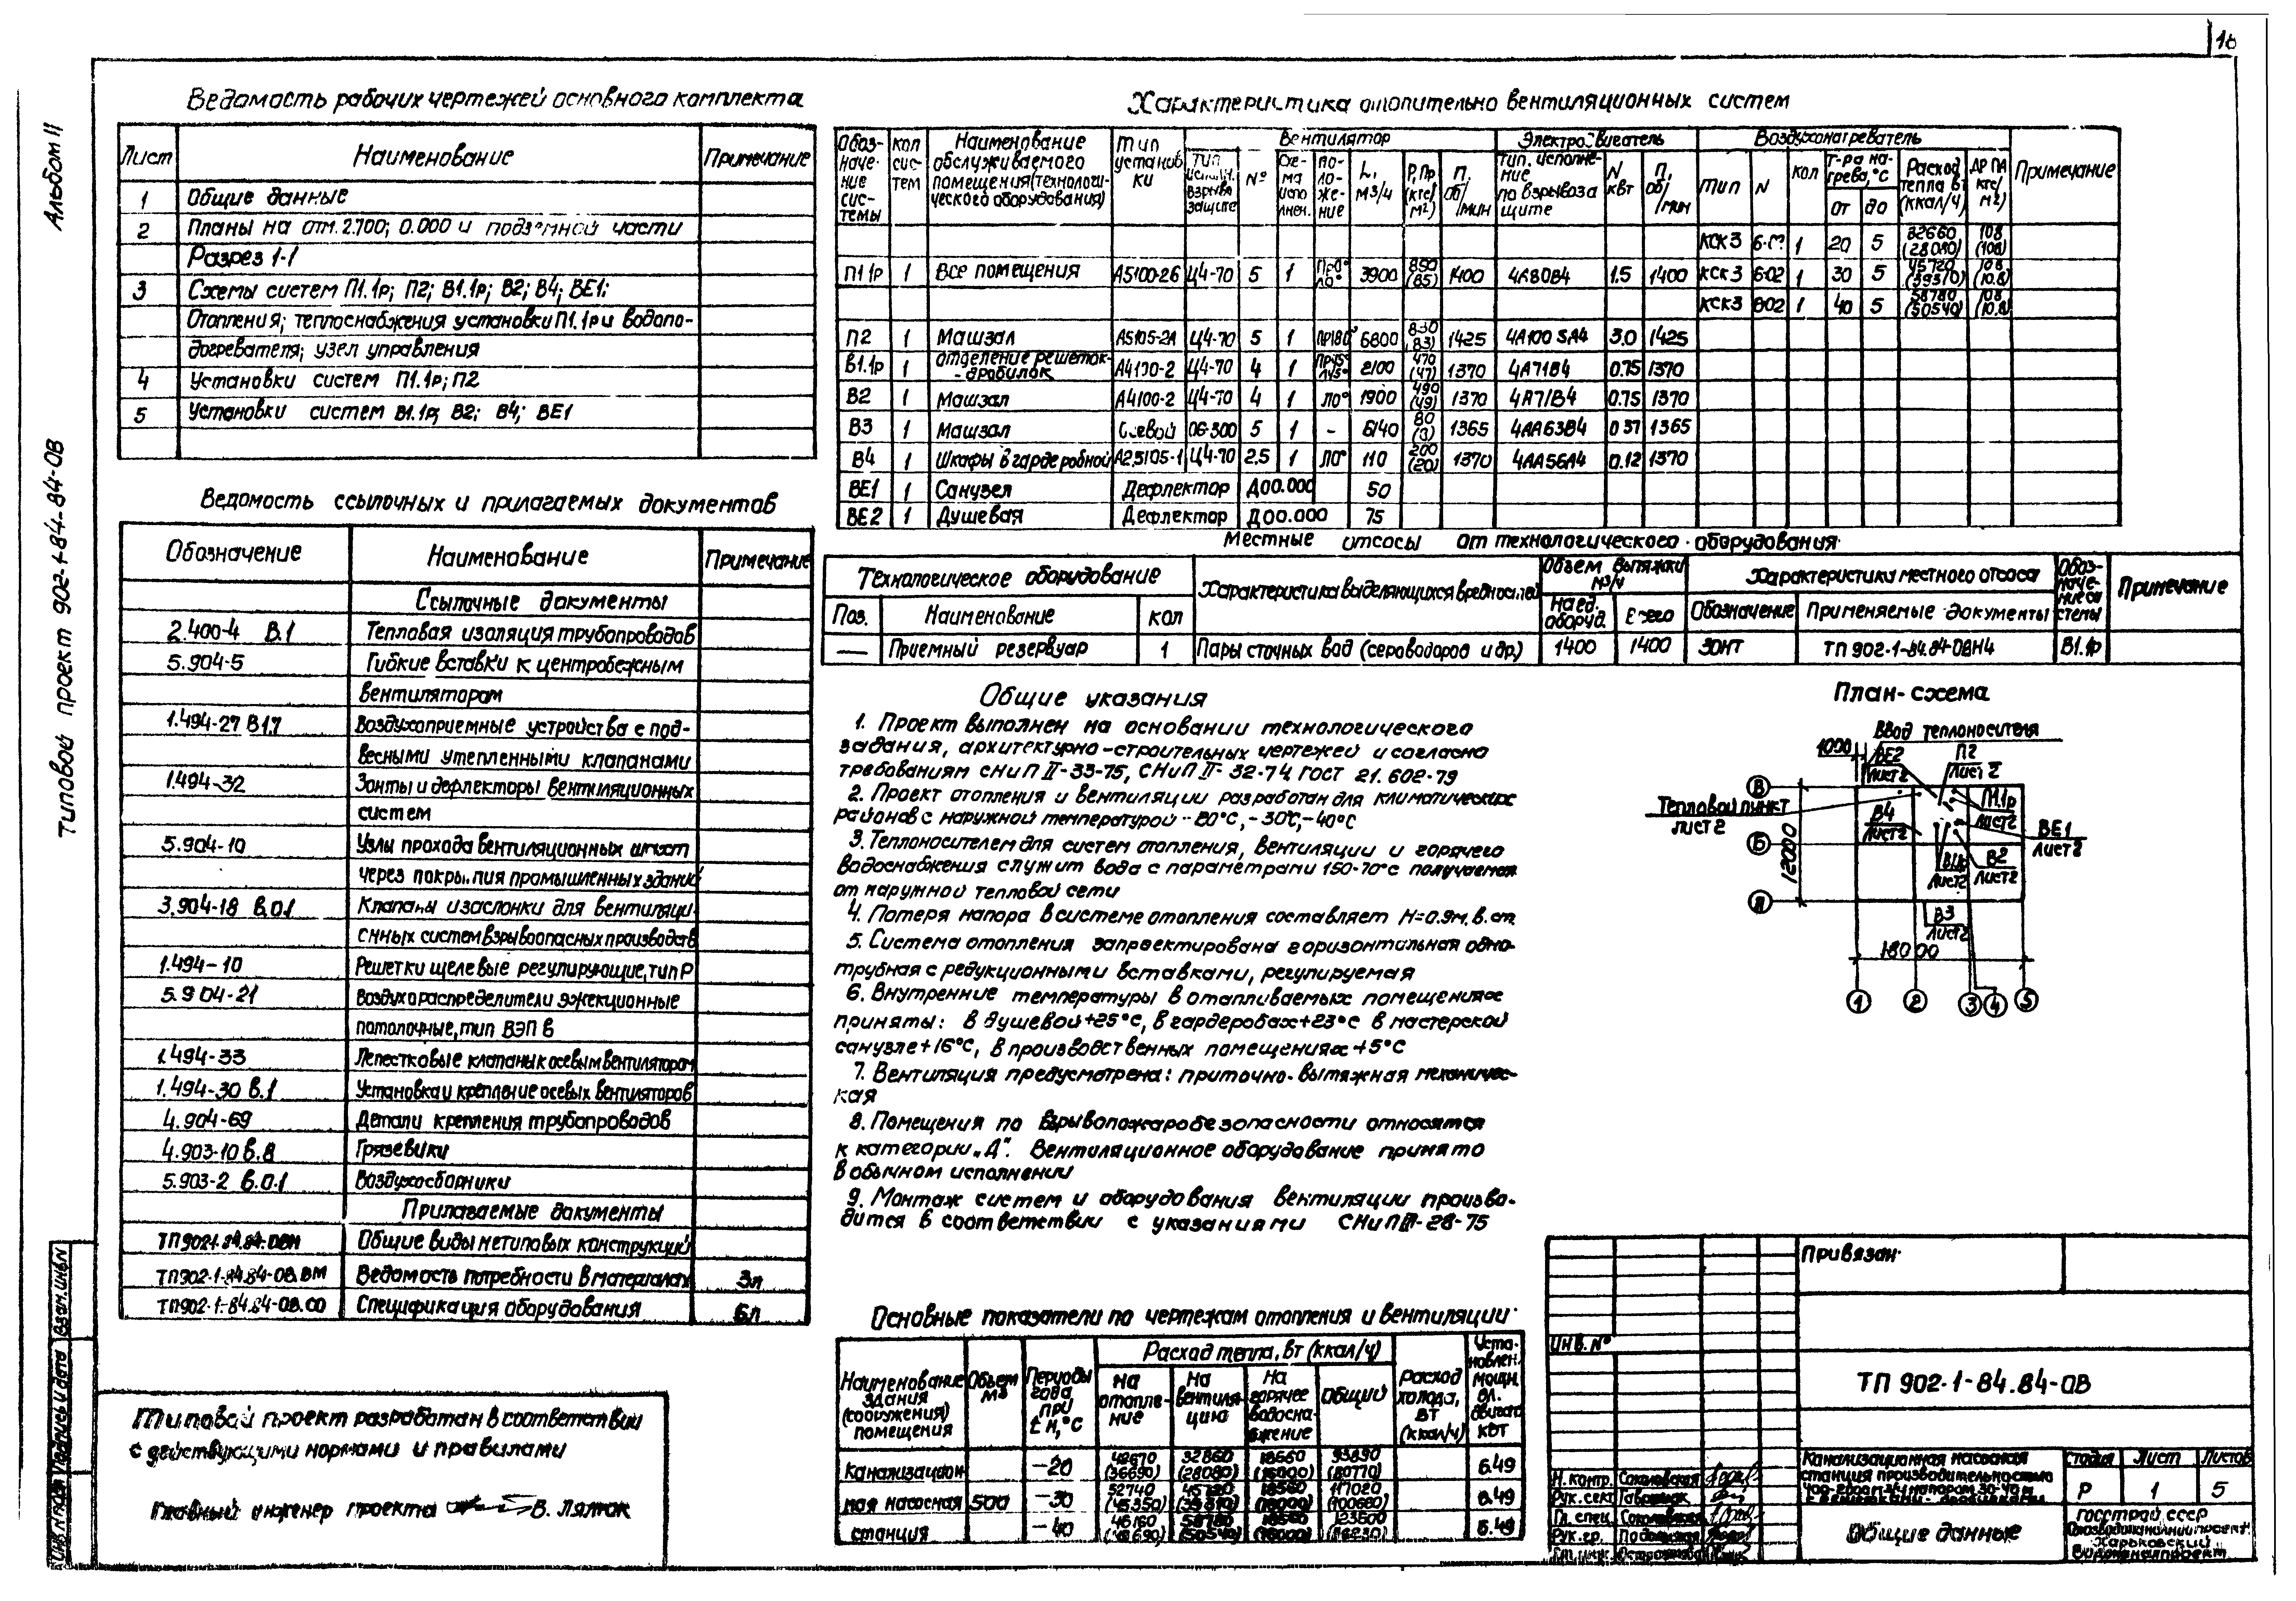 16
Альбом II
Типовой проект 902-1-84.84-ОВ
Ведомость рабочих чертежей основного комплекта
Лист Наименование Примечание
1 Общие данные
2 Планы на отм. 2.700; 0.000 и подземной части
Разрез 1-1
3 Схемы систем П1.1р; П2; В1.1р; В2; В4; ВЕ1;
Отопления; теплоснабжения установки П1.1р и водопо-
догревателя; узел управления
4 Установки систем П1.1р; П2
5 Установки систем В1.1р; В2; В4; ВЕ1
Ведомость ссылочных и прилагаемых документов
Обозначение Наименование Примечание
Ссылочные документы
2.400-4 В.1 Тепловая изоляция трубопроводов
5.904-5 Гибкие вставки к центробежным
вентиляторам
1.494-27 В1.7 Воздухоприемные устройства с под-
весными утепленными клапанами
1.494-32 Зонты и дефлекторы вентиляционных
систем
5.904-10 Узлы прохода вентиляционных шахт
через покрытия промышленных зданий
3.904-18 В.0.1 Клапаны и заслонки для вентиляци-
онных систем взрывоопасных производств
1.494-10 Решетки щелевые регулирующие, тип Р
5.904-21 Воздухораспределители эжекционные
потолочные, тип ВЭП в
1.494-33 Лепестковые клапаны к осевым вентиляторам
1.494-30 В.1 Установка и крепление осевых вентиляторов
4.904-69 Детали крепления трубопроводов
4.903-10 В.8 Грязевики
5.903-2 В.0.1 Воздухосборники
Прилагаемые документы
ТП902-1-84.84-ОВН Общие виды нетиповых конструкций
ТП902-1-84.84-ОВ.ВМ Ведомость потребности в материалах 3л
ТП902-1-84.84-ОВ.СО Спецификация оборудования 6л
Типовой проект разработан в соответствии
с действующими нормами и правилами
Главный инженер проекта В. Лялюк
Инв. N подл Подпись и дата Взам. инв. N
Характеристика отопительно вентиляционных систем
Обоз-начение системы кол систем Наименование обслуживаемого помещения (технологического оборудования) Тип установки Вентилятор Электродвигатель Воздухонагреватель Примечание
тип исполн. взрывозащите № Схема исполнен. положение L, м3/ч Р, Пр (кгс/м2) п. об/мин Тип. исполнение по взрывозащите N квт п, об/мин Тип N кол т-ра нагрева, °С от до Расход тепла вт (ккал/ч) ΔР ПА кгс/м2)
КСК3 1 20 5 32660 (28080) 108 (10.8)
П1 1р 1 Все помещения А5100-2б Ц4-70 5 1 3900 (85) 1400 4А80В4 1.5 1400 КСК3 6-02 1 30 5 45720 (39310) 10.8 (10.8)
КСК3 802 1 40 5 58780 (50540) 108 (10.8)
П2 1 Машзал А5105-2А Ц4-70 5 1 Пр180° 6800 830 (83) 1425 4А100 SA4 3.0 1425
В1.1р 1 отделение решеток-дробилок А4100-2 Ц4-70 4 1 2100 470 (47) 1370 4А71В4 0.75 1370
В2 1 Машзал А4100-2 Ц4-70 4 1 Л0° 1900 490 (49) 1370 4А71В4 0.75 1370
В3 1 Машзал Осевой 06-300 5 1 - 6140 80 1365 4АА63В4 0.37 1365
В4 1 Шкафы в гардеробной А2,5105-1 Ц4-70 2.5 1 Л0° 110 200 (20) 1370 4АА56А4 0.12 1370
ВЕ1 1 Санузел Дефлектор Д00.000 50
ВЕ2 1 Душевая Дефлектор Д00.000 75
Местные отсосы от технологического оборудования
Технологическое оборудование Характеристика выделяющихся вредностей Объем вытяжки м3/ч Характеристики местного отсоса Обозначение системы Примечание
Поз. Наименование кол На ед. оборуд. Всего Обозначение Применяемые документы
— Приемный резервуар 1 Пары сточных вод (сероводород и др.) 1400 1400 Зонт ТП 902-1-84.84-ОВН4 В1.1р
Общие указания
1. Проект выполнен на основании технологического
задания, архитектурно-строительных чертежей и согласно
требованиям СНиП II-33-75, СНиП II-32-74 ГОСТ 21.602-79
2. Проект отопления и вентиляции разработан для климатических
районов с наружной температурой -20°С, -30°С, -40°С
3. Теплоносителем для систем отопления, вентиляции и горячего
водоснабжения служит вода с параметрами 150-70°С получаемая
от наружной тепловой сети
4. Потеря напора в системе отопления составляет Н=0.9м. в. ст.
5. Система отопления запроектирована горизонтальная одно-
трубная с редукционными вставками, регулируемая
6. Внутренние температуры в отапливаемых помещениях
приняты: в душевой +25°С, в гардеробах +23°С в мастерской
санузле +16°С, в производственных помещениях +5°С
7. Вентиляция предусмотрена: приточно-вытяжная механичес-
кая
8. Помещения по взрывопожаробезопасности относятся
к категории „Д". Вентиляционное оборудование принято
в обычном исполнении
9. Монтаж систем и оборудования вентиляции произво-
дится в соответствии с указаниями СНиП III-28-75
План-схема
Ввод теплоносителя
1000
ВЕ2 Лист 2
П2 Лист 2
П1.1р Лист 2
Тепловой пункт
лист 2
В4 Лист 2
ВЕ1 Лист 2
В1.1р Лист 2
В2 Лист 2
В3 Лист 2
В Б
12000
18000
1 2 3 4 5
Основные показатели по чертежам отопления и вентиляции
Наименование здания (сооружения) помещения Объем м3 Периоды года при tн, °С Расход тепла, вт (ккал/ч) Расход холода, вт (ккал/ч) Установлен. мощн. эл. двигат. квт
на отопление На вентиляцию На горячее водоснабжение Общий
Канализацион -20 (36690) 32860 (28080) 18660 (16000) 93890 (80770) 6.49
ная насосная 500 -30 52740 (45350) 45720 (39310) 18560 (16000) 117020 (100680) 6.49
станция -40 58780 (50540) (16000) 123500 6.49
Привязан
Инв. №
ТП 902-1-84.84-ОВ
Н. контр. Соколовская
Рук. сект
Гл. спец. Соколовская
Рук. гр. Подольская
Канализационная насосная
станция производительностью
400-2000 м3/ч напором 30-40 м
Стадия Лист Листов
Р 1 5
Общие данные
Госстрой СССР
Союзводоканалниипроект
Харьковский
Водоканалпроект